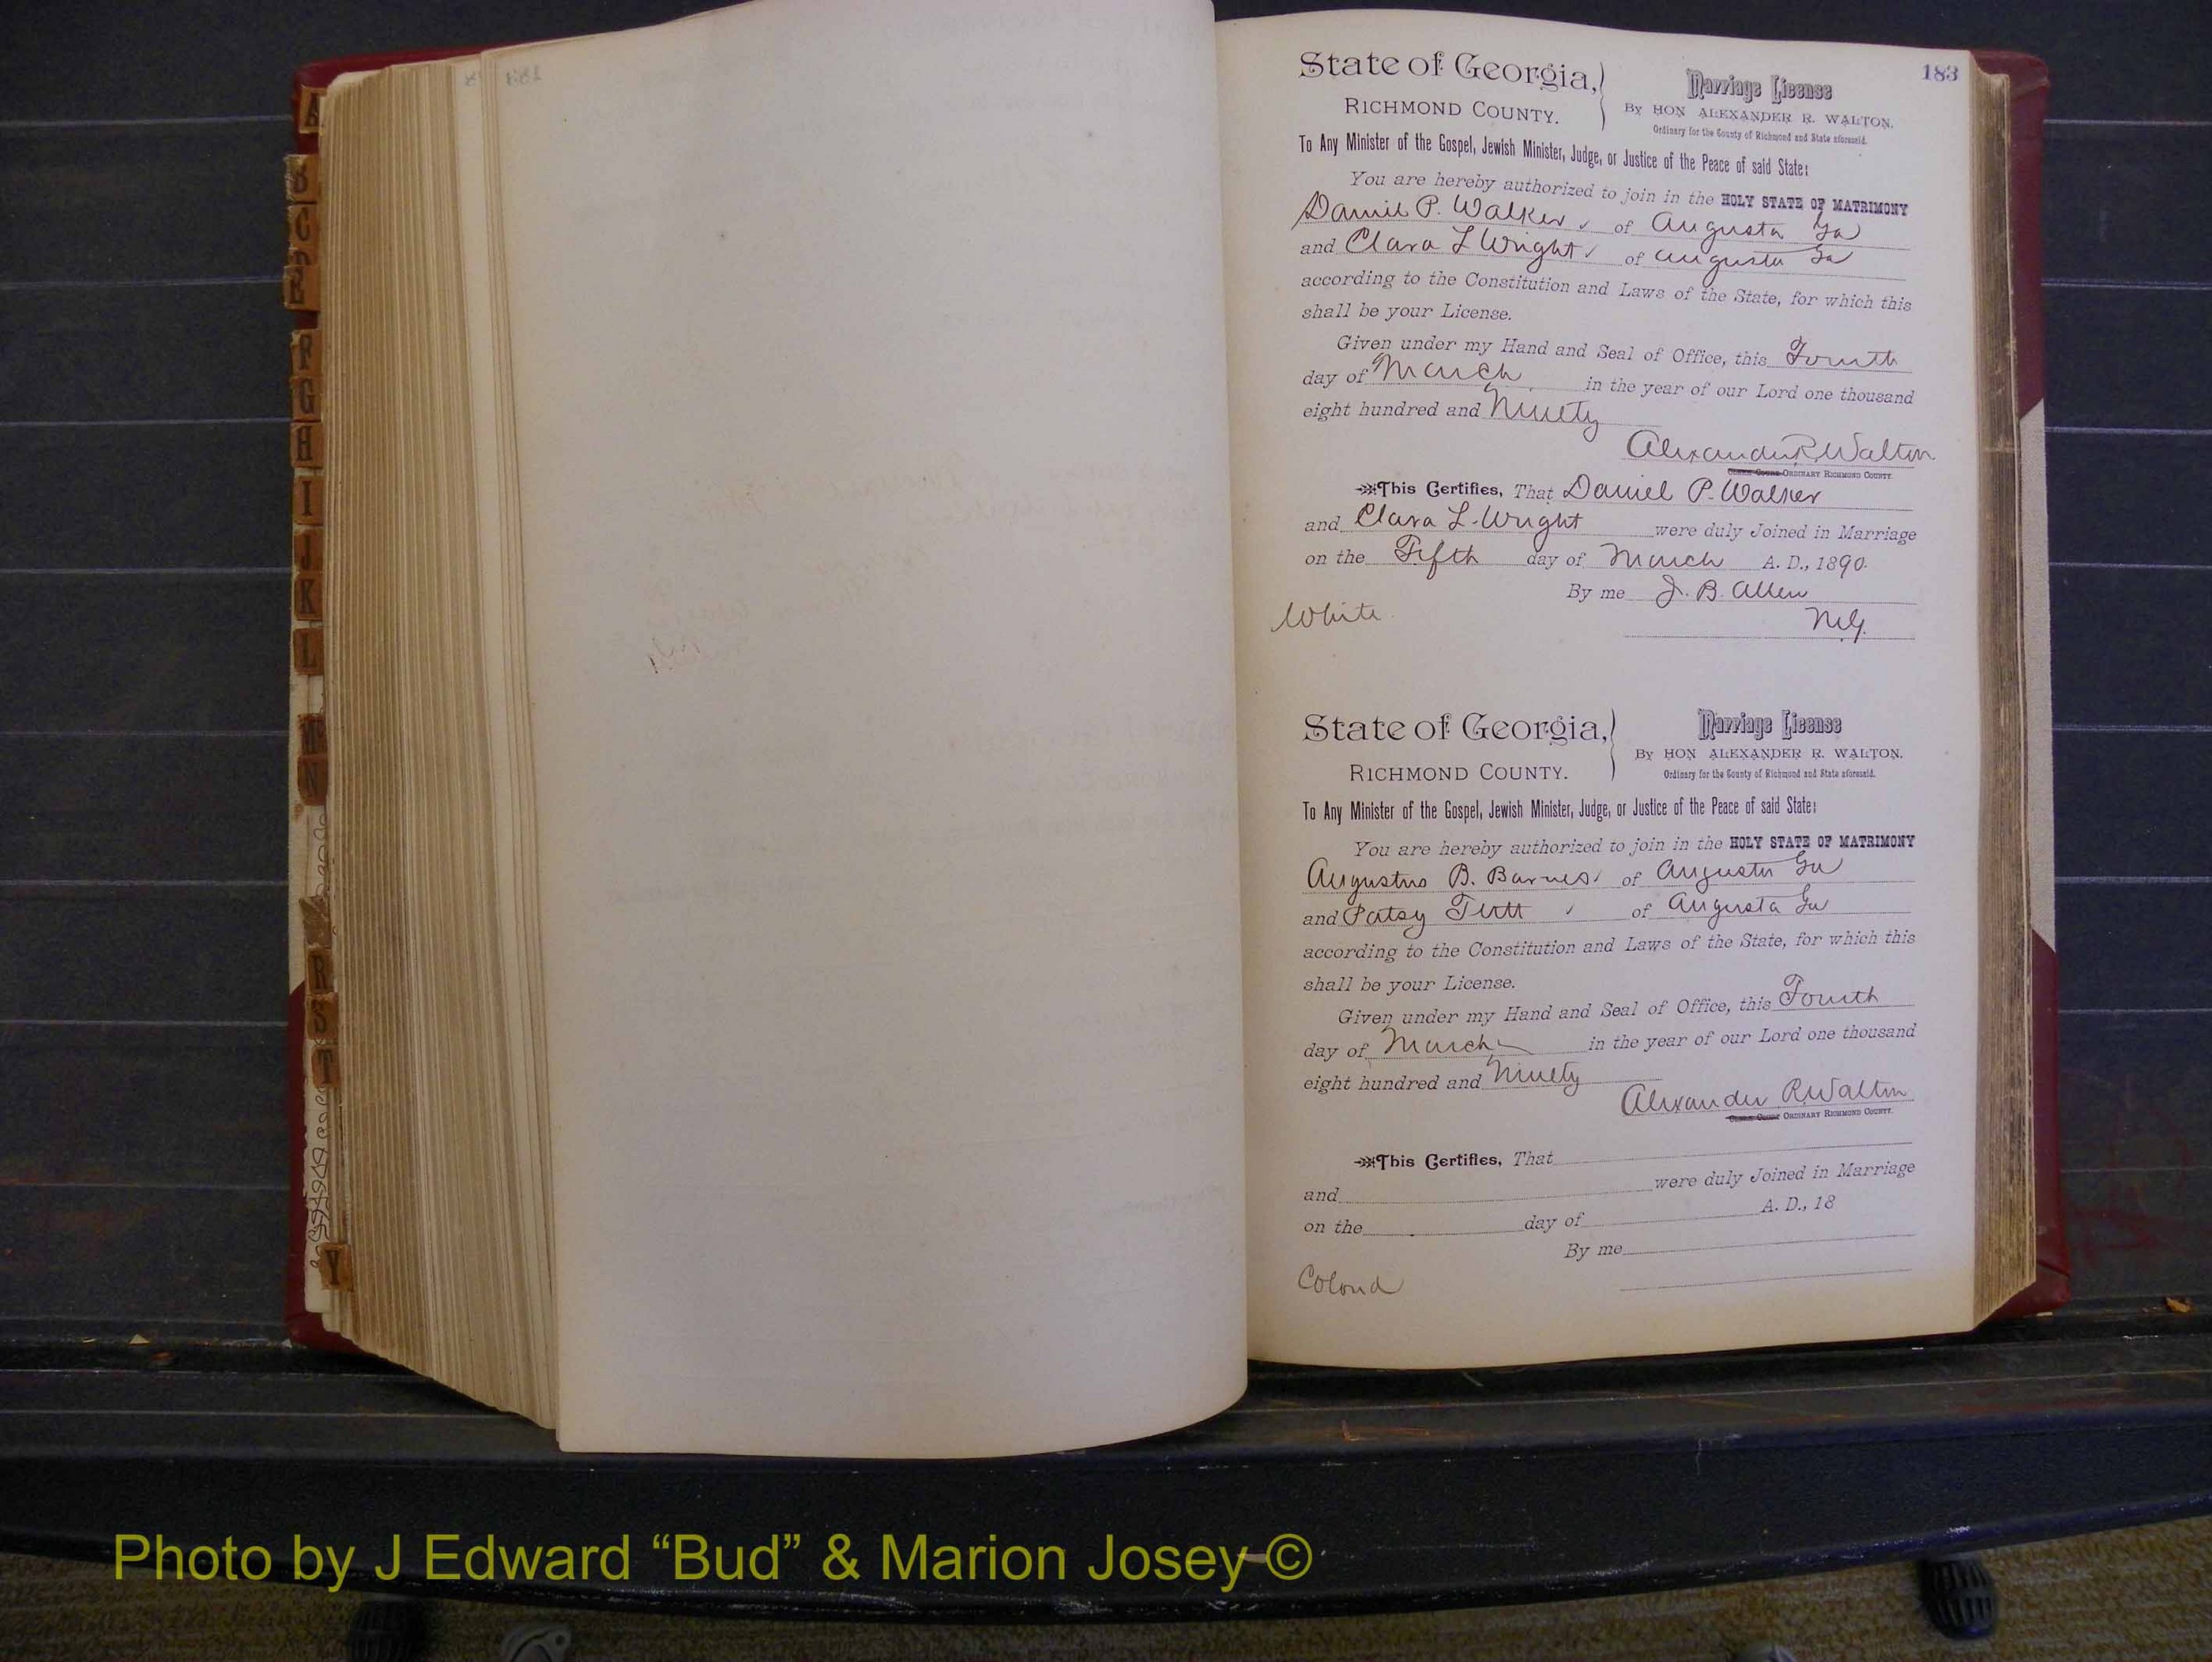 183
State of Georgia,
RICHMOND COUNTY.
Marriage License
By HON ALEXANDER R. WALTON,
Ordinary for the County of Richmond and State aforesaid.
To Any Minister of the Gospel, Jewish Minister, Judge, or Justice of the Peace of said State:
You are hereby authorized to join in the HOLY STATE OF MATRIMONY
Daniel P. Walker of Augusta Ga
and Clara L Wright of Augusta Ga
according to the Constitution and Laws of the State, for which this
shall be your License.
Given under my Hand and Seal of Office, this Fourth
day of March in the year of our Lord one thousand
eight hundred and Ninety
Alexander R Walton
Clerk Court ORDINARY RICHMOND COUNTY.
This Certifies, That Daniel P. Walker
and Clara L. Wright were duly Joined in Marriage
on the Fifth day of March A. D., 1890.
By me J. B. Allen
White
State of Georgia,
RICHMOND COUNTY.
Marriage License
By HON ALEXANDER R. WALTON.
Ordinary for the County of Richmond and State aforesaid.
To Any Minister of the Gospel, Jewish Minister, Judge, or Justice of the Peace of said State:
You are hereby authorized to join in the HOLY STATE OF MATRIMONY
Augustus B. Barnes of Augusta Ga
and Patsy Tutt of Augusta Ga
according to the Constitution and Laws of the State, for which this
shall be your License.
Given under my Hand and Seal of Office, this Fourth
day of March in the year of our Lord one thousand
eight hundred and Ninety
Alexander R Walton
Clerk Court ORDINARY RICHMOND COUNTY.
This Certifies, That
and were duly Joined in Marriage
on the day of A. D., 18
By me
Colored
B
C
E
F
G
H
I
J
K
L
M
N
R
S
T
Y
Photo by J Edward “Bud” & Marion Josey ©